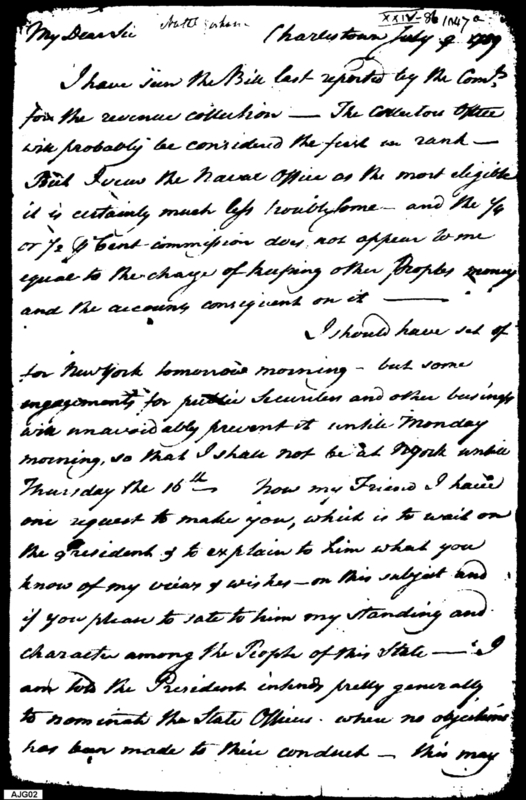 XXIV-86
My Dear Sir Charlestown July 9 1789
I have seen the Bill last reported by the Comte.
for the revenue collection — The Collectors Office
will probably be considered the first in rank —
But I view the Naval Office as the most eligible
it is certainly much less troublesome — and the 1/4
or 1/2 Ct Cent commission does not appear to me
equal to the charge of keeping other Peoples money
and the accounts consequent on it —
I should have set of
for New York tomorrow morning — but some
engagements for public Securities and other business
will unavoidably prevent it untill Monday
morning, so that I shall not be at NYork untill
Thursday the 16th — Now my Friend I have
one request to make you, which is to wait on
the President & to explain to him what you
know of my views & wishes — on this subject and
if you please to sate to him my standing and
character among the People of this State — I
am told the President intends pretty generally
to nominate the State Officers where no objections
has been made to their conduct — this may
AJG02